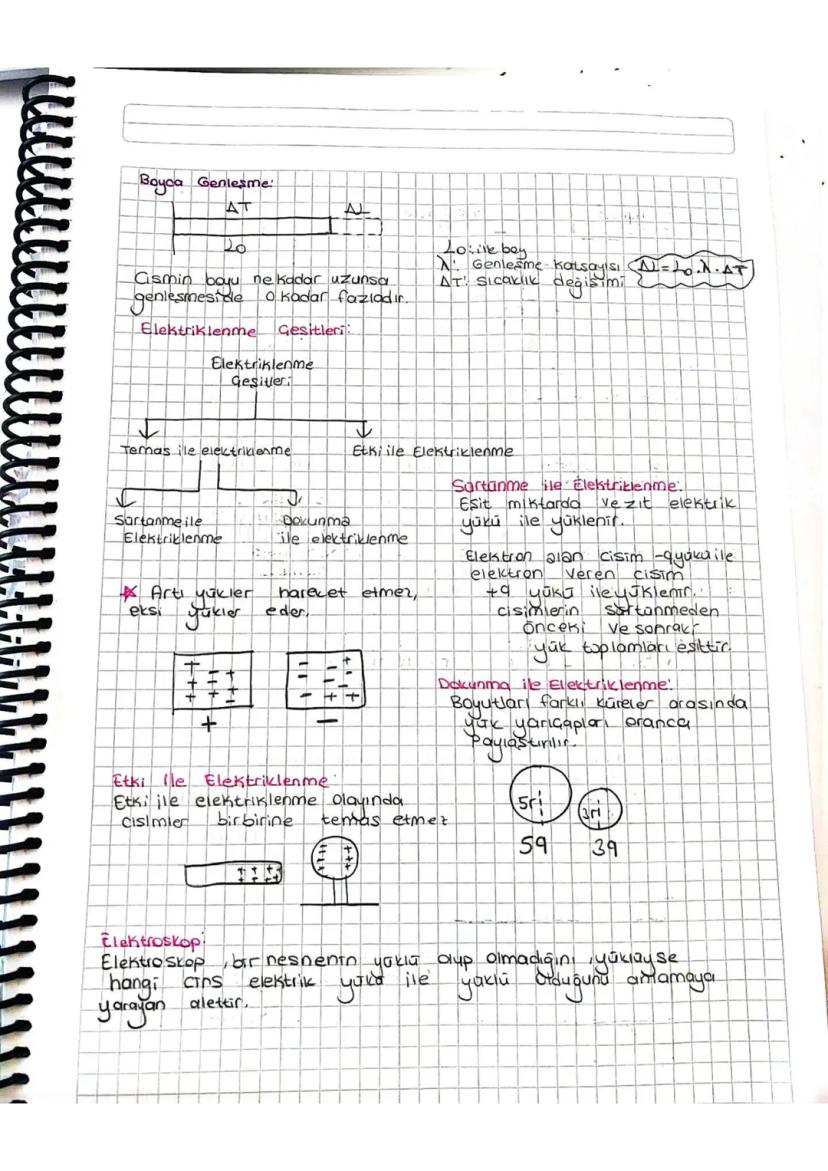 Boyca Genleşme:
ΔT
ΔL
Lo
Lo: ilk boy
λ: Genleşme katsayısı
ΔL = Lo.λ.ΔT
ΔT: sıcaklık değişimi
Cismin boyu ne kadar uzunsa
genleşmeside o kadar fazladır.
Elektriklenme Çeşitleri:
Elektriklenme
Çeşitleri
Temas ile elektriklenme
Etki ile Elektriklenme
Sürtünme ile
Elektriklenme
Dokunma
ile elektriklenme
Artı yükler hareket etmez,
eksi yükler eder.
+ -
Sürtünme ile Elektriklenme:
Eşit miktarda ve zıt elektrik
yükü ile yüklenir.
Elektron alan cisim -q yükü ile
elektron veren cisim
+q yükü ile yüklenir.
cisimlerin sürtünmeden
önceki ve sonraki
yük toplamları eşittir.
Dokunma ile Elektriklenme:
Boyutları farklı küreler arasında
yük yarıçapları oranca
Paylaştırılır.
5r 3r
5q 3q
Etki ile Elektriklenme:
Etki ile elektriklenme olayında
cisimler birbirine temas etmez
Elektroskop:
Elektroskop, bir nesnenin yüklü olup olmadığını, yüklüyse
hangi cins elektrik yükü ile yüklü olduğunu anlamaya
yarayan alettir.